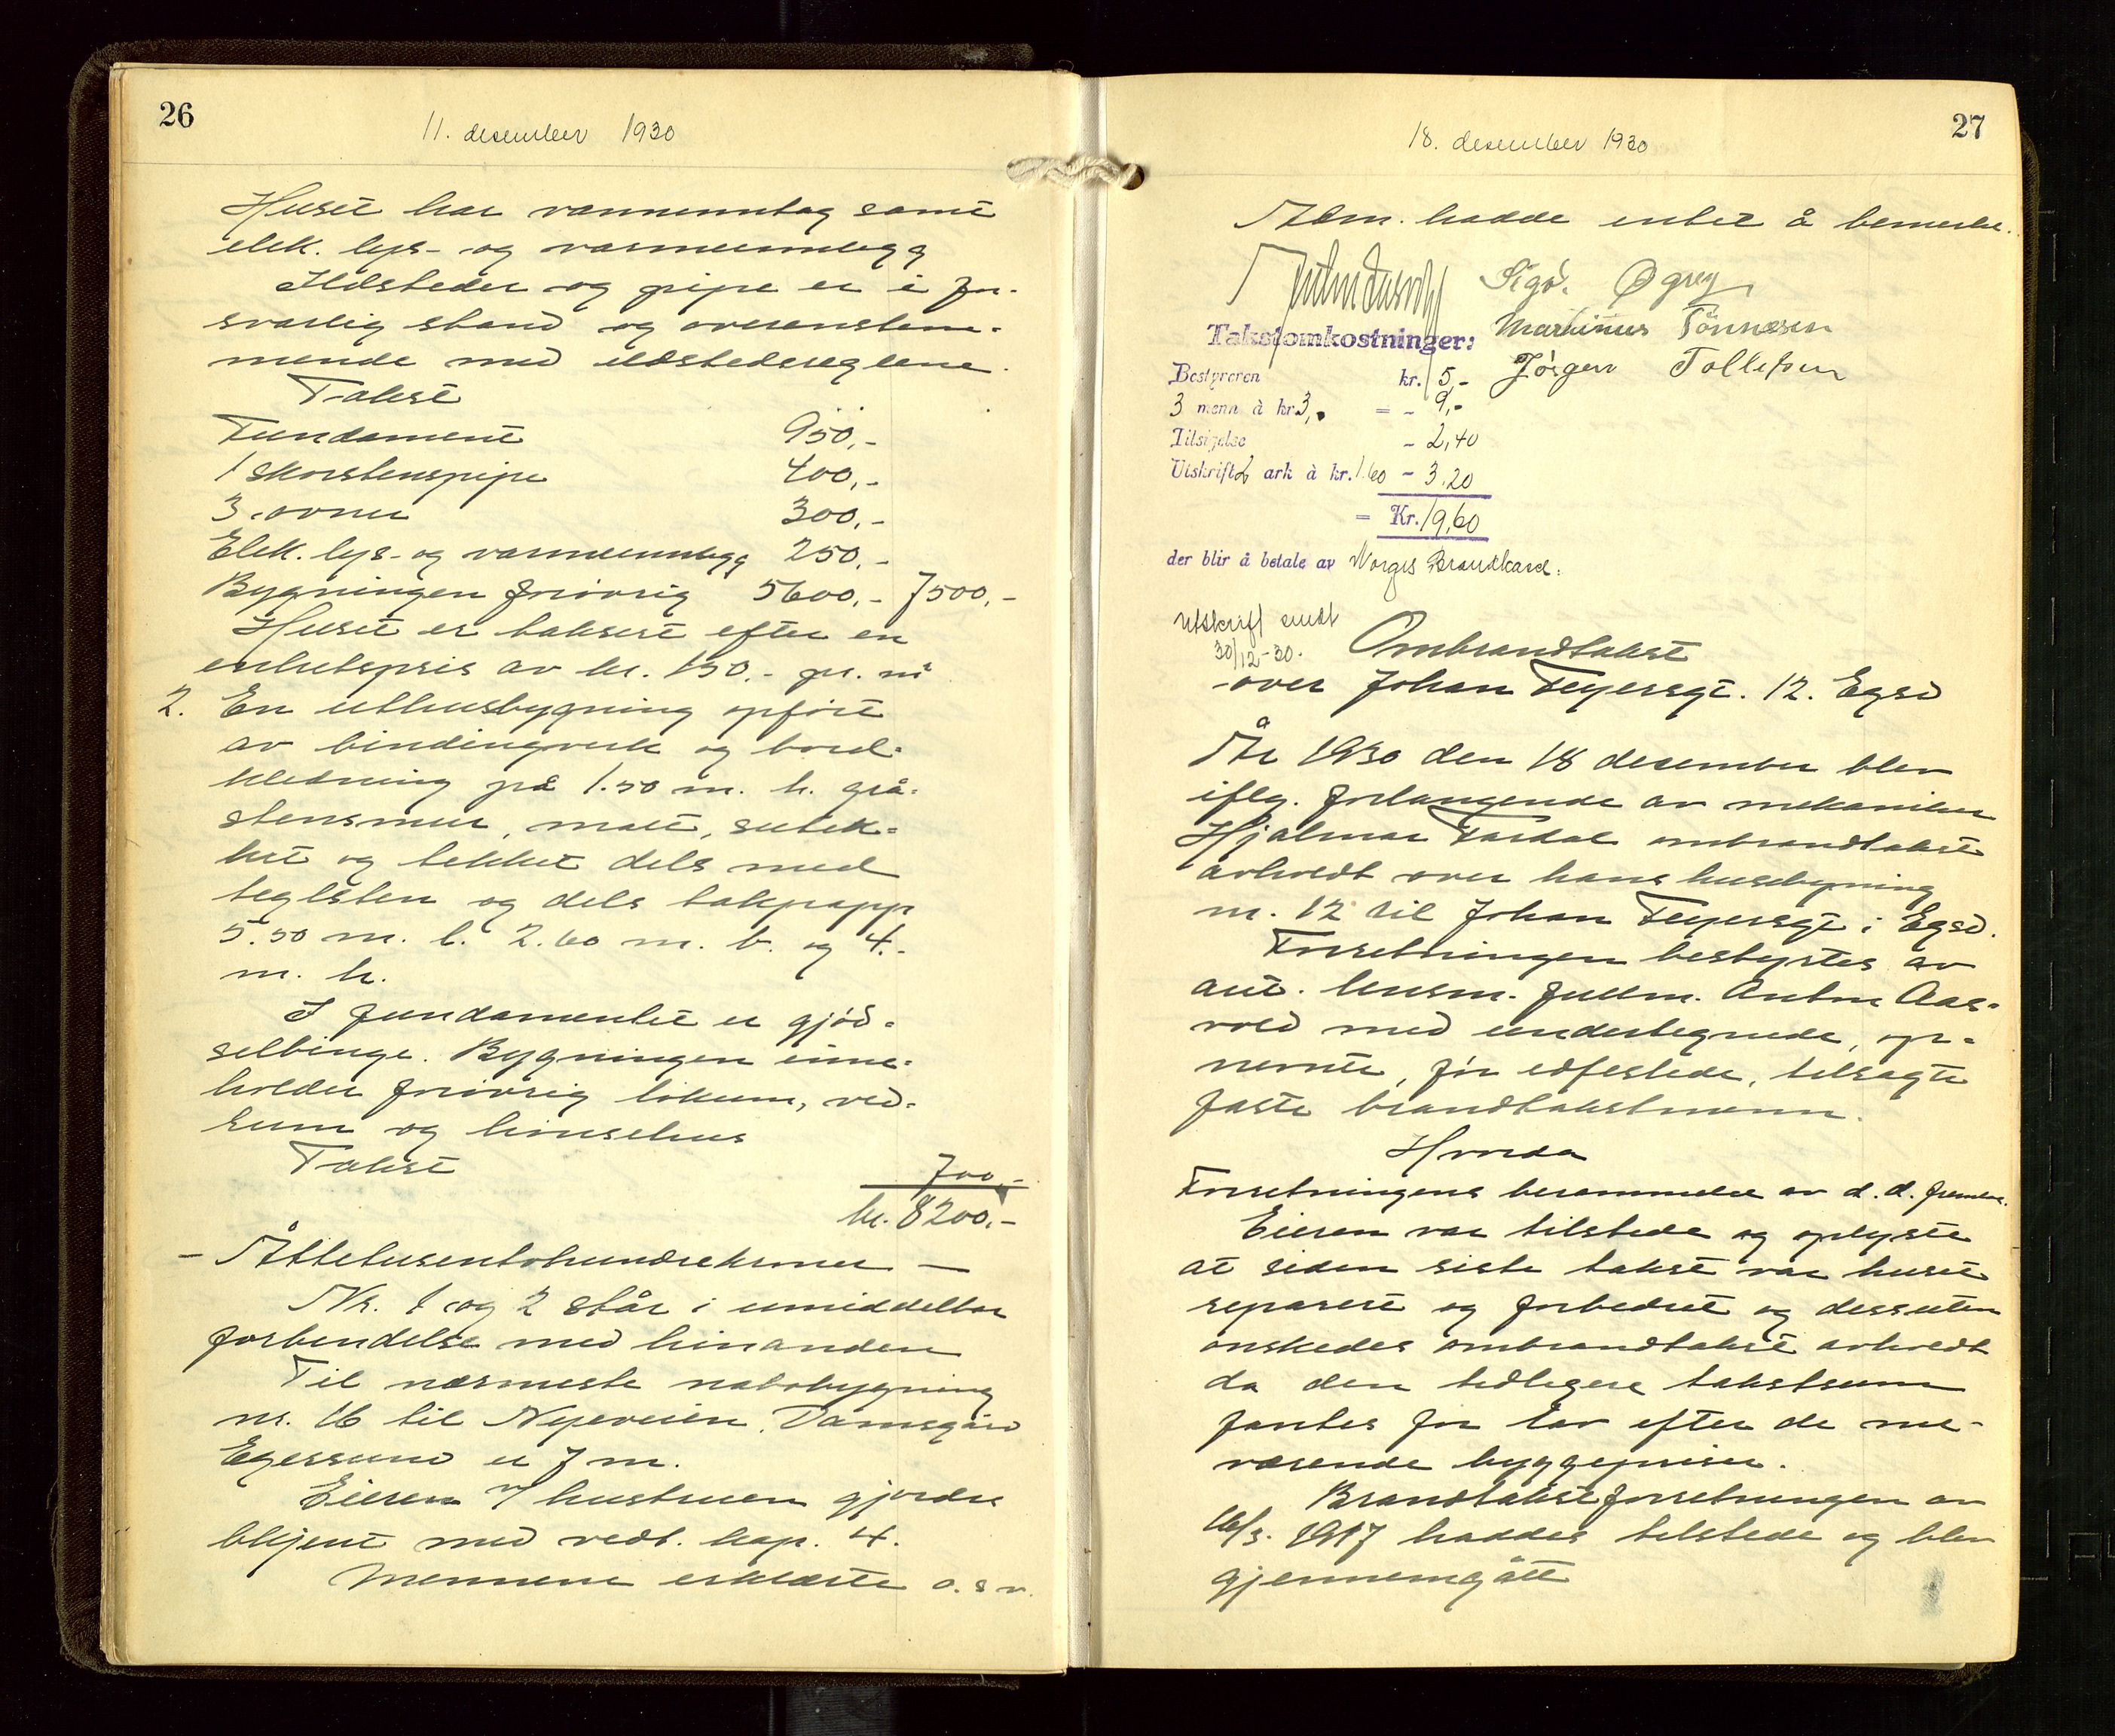 26
11. desember 1930
Huset har vanninntag samt
elek. lys- og varmeinnlegg
Ildsteder og pipe er i for-
svarlig stand og overenstem-
mende med ildstedsreglene.
Takst
Fundament 950,-
1 skorstenspipe 400,-
3 ovner 300,-
Elek. lys- og varmeinnlegg 250,-
Bygningen forøvrig 5600,- 7500,-
Huset er taksert efter en
enhetspris av kr. 150.- pr. m²
2. En uthusbygning opført
av bindingverk og bord-
kledning på 1.50 m. h. grå-
stensmur, malt, sutek-
ket og tekket dels med
teglsten og dels takpapp
5.50 m. l. 2.60 m. b. og 4.-
m. h.
I fundamentet er gjød-
selbinge. Bygningen inne-
holder forøvrig lokum, ved-
rum og hønsehus
Takst 700,-
kr. 8200.-
- Åttetusentohundrekroner -
Nr. 1 og 2 står i umiddelbar
forbindelse med hinanden
Til nærmeste nabobygning
nr. 16 til Nyeveien, Damsgård
Egersund er 7 m.
Eieren v/ hustruen gjordes
bkjent med vedt. kap. 4.
Mennene erklærte o.s.v.
27
18. desember 1930
Adm. hadde intet å bemerke.
Sigv. Øgrey
Takstomkostninger: Martinus Tönnesen
Bestyreren kr. 5,- Jørgen Tollefsen
3 menn à kr 3,- = - 9,-
Tilsigelse - 2,40
Utskrift 2 ark à kr. 1.60 - 3,20
= Kr. 19,60
der blir å betale av Norges Brandkasse.
Utskrift sendt
30/12-30.
Ombrandtakst
over Johan Feyersgt. 12. Egsd
År 1930 den 18 desember blev
iflg. forlangende av mekaniker
Hjalmar Tardal ombrandtakst
avholdt over hans husebygning
nr. 12 til Johan Feyersgt i Egsd.
Forretningen bestyrtes av
aut. lensm. fullm. Anton Aas-
vold med undertegnede, op-
nevnte, før edfestede, tilsagte
faste brandtakstmenn.
Hvorda
Forretningens berammelse av d.d. fremla.
Eieren var tilstede og oplyste
at siden siste takst var huset
reparert og forbedret og dessuten
ønskedes ombrandtakst avholdt
da den tidligere takstsum
fantes for lav efter de nu-
værende byggepriser.
Brandtakstforretningen av
16/3. 1917 haddes tilstede og blev
gjennemgått